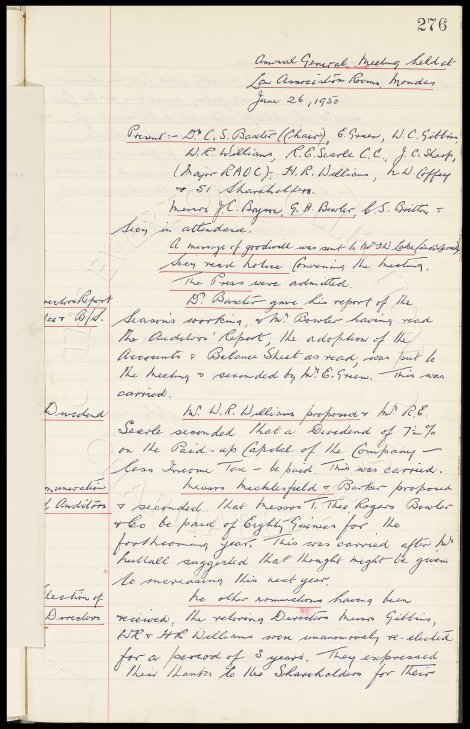 276
Annual General Meeting held at
Law Association Rooms, Monday
June 26, 1950
Present:- Dr. C. S. Baxter (Chair), E. Green, W. C. Gibbins,
W. R. Williams, R. E. Searle C.C., J. C. Sharp,
(Major RAOC), H. R. Williams, N W Coffey
& 51 Shareholders.
Messrs J. C. Bryson, G. A. Bowler, C. S. Britten &
Secy in attendance.
A message of goodwill was sent to Mr
Secy read notice convening the meeting.
The Press were admitted.
Dr. Baxter gave his report of the
Report
& B/S.
Season's working, & Mr Bowler having read
the Auditors' Report, the adoption of the
Accounts & Balance Sheet as read, was put to
the Meeting & seconded by Mr. E. Green. This was
carried.
Dividend
Mr. W. R. Williams proposed & Mr R. E.
Searle seconded that a Dividend of 7½%
on the Paid-up Capital of the Company –
less Income Tax – be paid. This was carried.
Messrs Micklesfield & Barker proposed
muneration
Auditors
& seconded that Messrs T. Theo Rogers Bowler
& Co be paid of Eighty Guineas for the
forthcoming year. This was carried after Mr
Nuttall suggested that thought might be given
to increasing this next year.
lection of
No other nominations having been
Directors
received, the retiring Directors Messrs Gibbins,
WR & HR Williams were unanimously re-elected
for a period of 3 years. They expressed
their thanks to the Shareholders for their